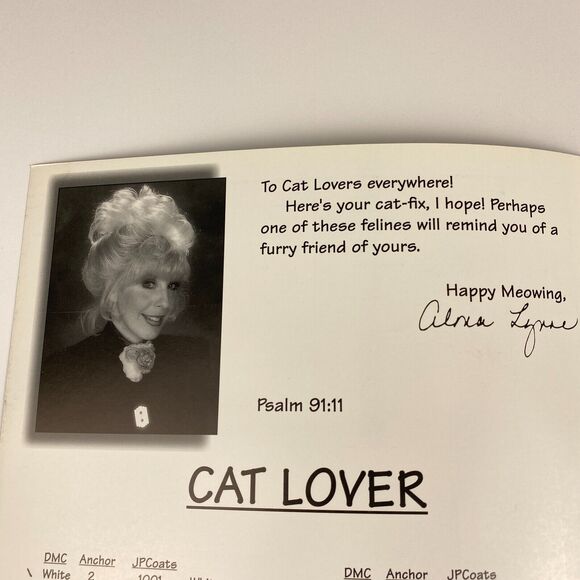 To Cat Lovers everywhere!
Here's your cat-fix, I hope! Perhaps
one of these felines will remind you of a
furry friend of yours.
Happy Meowing,
Alona Lynne
Psalm 91:11
CAT LOVER
DMC Anchor JPCoats
White 2 1001
DMC Anchor JPCoats